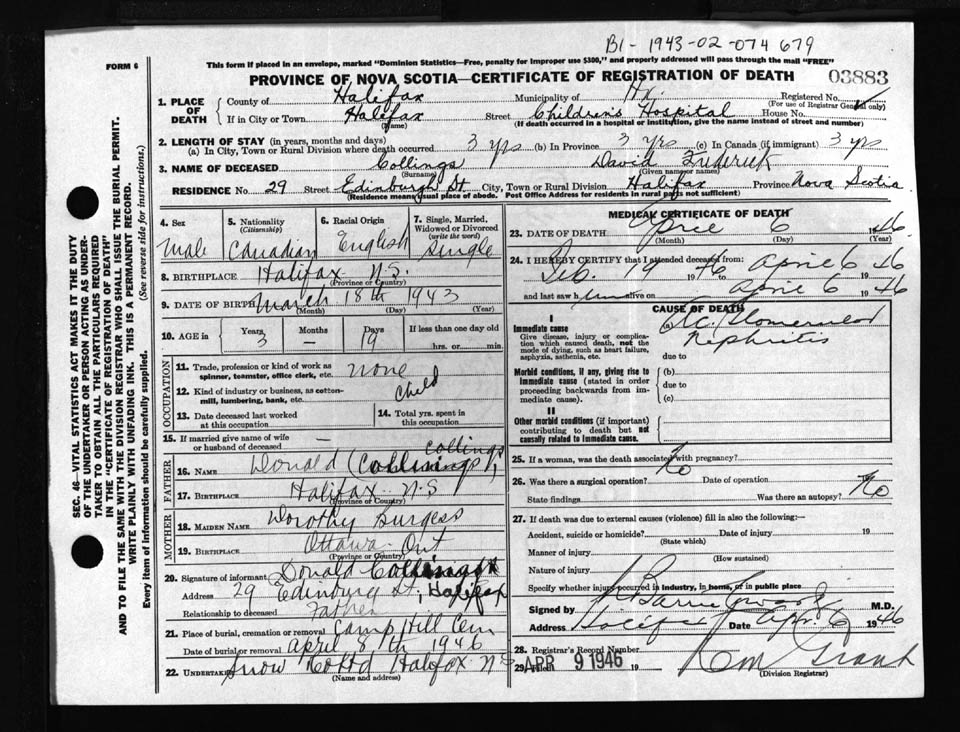 B1-1943-02-074679
FORM 6
This form if placed in an envelope, marked "Dominion Statistics—Free, penalty for improper use $300," and properly addressed will pass through the mail "FREE"
PROVINCE OF NOVA SCOTIA—CERTIFICATE OF REGISTRATION OF DEATH 03883
1. PLACE OF DEATH
County of Halifax Municipality of Hx. Registered No.
(For use of Registrar General only)
If in City or Town Halifax Street Children's Hospital House No.
(Name) (If death occurred in a hospital or institution, give the name instead of street and number)
2. LENGTH OF STAY (in years, months and days)
(a) In City, Town or Rural Division where death occurred 3 yrs (b) In Province 3 yrs (c) In Canada (if immigrant) 3 yrs
3. NAME OF DECEASED Collings David Frederick
(Surname) (Given name or names)
RESIDENCE No. 29 Street Edinburgh St City, Town or Rural Division Halifax Province Nova Scotia
(Residence means usual place of abode. Post Office Address for residents in rural parts not sufficient)
4. Sex Male
5. Nationality (Citizenship) Canadian
6. Racial Origin English
7. Single, Married, Widowed or Divorced (write the word) Single
8. BIRTHPLACE Halifax N.S.
(Province or Country)
9. DATE OF BIRTH March 18th 1943
(Month) (Day) (Year)
10. AGE in Years 3 Months — Days 19 If less than one day old
hrs. or min.
11. Trade, profession or kind of work as spinner, teamster, office clerk, etc. none
12. Kind of industry or business, as cotton-mill, lumbering, bank, etc. Child
13. Date deceased last worked at this occupation
14. Total yrs. spent in this occupation
OCCUPATION
15. If married give name of wife or husband of deceased —
FATHER
16. NAME Donald (Collinings) Collings
17. BIRTHPLACE Halifax N.S
(Province or Country)
MOTHER
18. MAIDEN NAME Dorothy Burgess
19. BIRTHPLACE Ottawa Ont
(Province or Country)
20. Signature of informant Donald Collings
Address 29 Edinburg St. Halifax
Relationship to deceased Father
21. Place of burial, cremation or removal Camp Hill Cem
Date of burial or removal April 8th 1946
22. UNDERTAKER Snow Co Ltd Halifax NS
(Name and address)
MEDICAL CERTIFICATE OF DEATH
23. DATE OF DEATH April 6 1946
(Month) (Day) (Year)
24. I HEREBY CERTIFY that I attended deceased from:
Feb. 19 1946 to April 6 1946
and last saw him alive on April 6 1946
CAUSE OF DEATH
I
Immediate cause (a) Ac. Glomerular Nephritis
Give disease, injury or complication which caused death, not the mode of dying, such as heart failure, asphyxia, asthenia, etc.
due to
Morbid conditions, if any, giving rise to immediate cause (stated in order proceeding backwards from immediate cause).
(b)
due to
(c)
II
Other morbid conditions (if important) contributing to death but not causally related to immediate cause.
25. If a woman, was the death associated with pregnancy?
26. Was there a surgical operation? No Date of operation
State findings Was there an autopsy? No
27. If death was due to external causes (violence) fill in also the following:—
Accident, suicide or homicide? Date of injury 19
(State which)
Manner of injury
(How sustained)
Nature of injury
Specify whether injury occurred in industry, in home, or in public place
Signed by M.D.
Address Halifax Date Apr 6 1946
28. Registrar's Record Number
29. Filed APR 9 1946 19
(Division Registrar)
SEC. 46—VITAL STATISTICS ACT MAKES IT THE DUTY
OF THE UNDERTAKER OR PERSON ACTING AS UNDER-
TAKER TO OBTAIN ALL THE PARTICULARS REQUIRED
IN THE "CERTIFICATE OF REGISTRATION OF DEATH"
AND TO FILE THE SAME WITH THE DIVISION REGISTRAR WHO SHALL ISSUE THE BURIAL PERMIT.
WRITE PLAINLY WITH UNFADING INK. THIS IS A PERMANENT RECORD.
Every item of information should be carefully supplied. (See reverse side for instructions.)